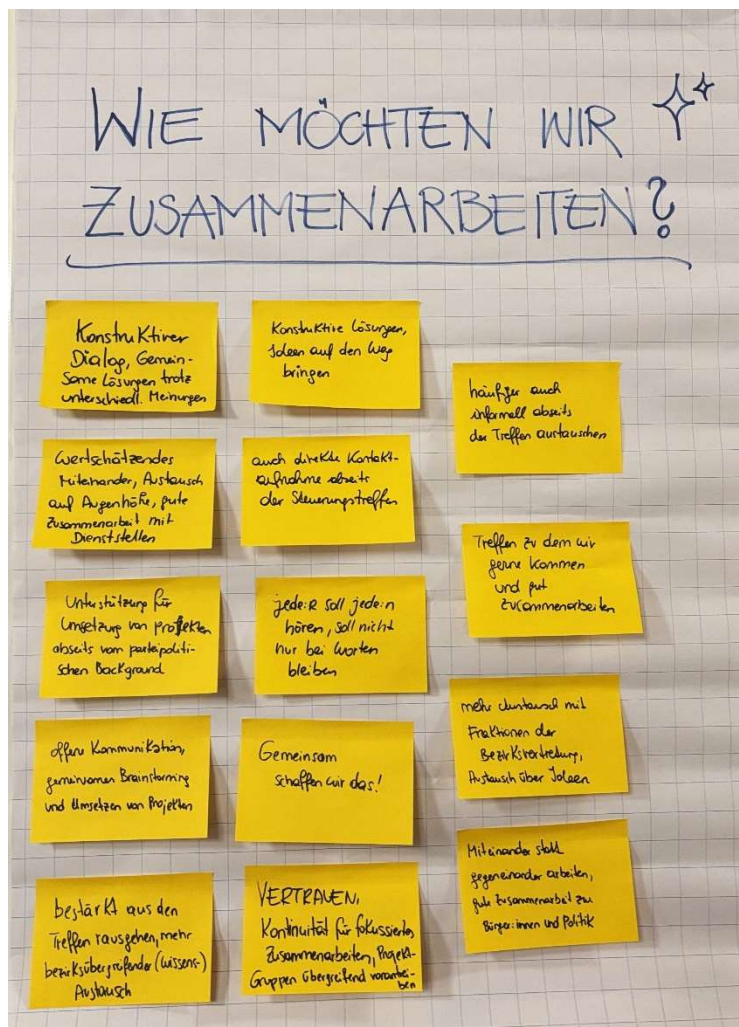 WIE MÖCHTEN WIR
ZUSAMMENARBEITEN?
Konstruktiver
Dialog, Gemein-
same Lösungen trotz
unterschiedl. Meinungen
Wertschätzendes
Miteinander, Austausch
auf Augenhöhe, gute
Zusammenarbeit mit
Dienststellen
Unterstützung für
Umsetzung von Projekten
abseits vom parteipoliti-
schen Background
offene Kommunikation,
gemeinsames Brainstorming
und Umsetzen von Projekten
bestärkt aus den
Treffen rausgehen, mehr
bezirksübergreifender (Wissens-)
Austausch
Konstruktive Lösungen,
Ideen auf den Weg
bringen
auch direkte Kontakt-
aufnahme abseits
der Steuerungstreffen
jede:r soll jede:n
hören, soll nicht
nur bei Worten
bleiben
Gemeinsam
schaffen wir das!
VERTRAUEN,
Kontinuität für fokussiertes
Zusammenarbeiten, Projekt-
Gruppen übergreifend
häufiger auch
informell abseits
der Treffen austauschen
Treffen zu dem wir
gerne kommen
und gut
zusammenarbeiten
mehr Austausch mit
Fraktionen der
Bezirksvertretung,
Austausch über Ideen
Miteinander statt
gegeneinander arbeiten,
gute Zusammenarbeit zw.
Bürger:innen und Politik